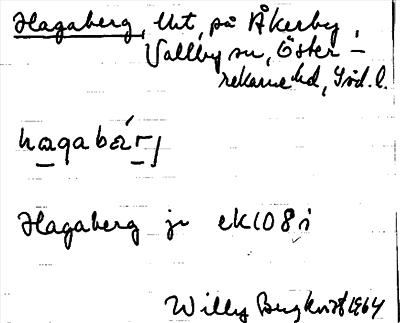 Hagaberg, lht, på Åkerby,
Vallby sn, Öster-
rekarne hd, Söd. l.
hagabär̀j
Hagaberg je ek 108 i
Willy Bergkvist 1964